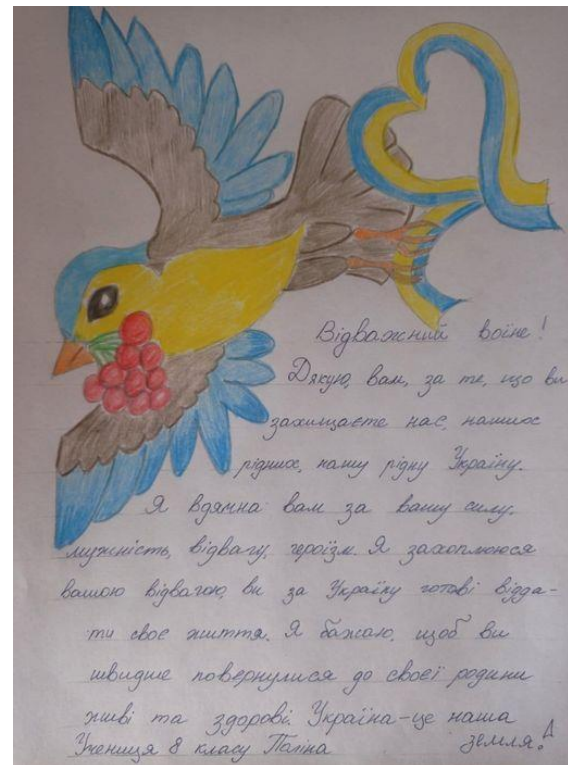 Відважний воїне!
Дякую, вам, за те, що ви
захищаєте нас, наших
рідних, нашу рідну Україну.
Я вдячна вам за вашу силу,
мужність, відвагу, героїзм. Я захоплююся
вашою відвагою, ви за Україну готові відда-
ти своє життя. Я бажаю, щоб ви
швидше повернулися до своєї родини
живі та здорові. Україна-це наша
земля!
Учениця 8 класу Поліна